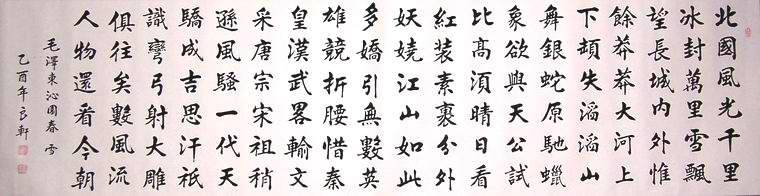 北國風光千里
冰封萬里雪飄
望長城內外惟
餘莽莽大河上
下頓失滔滔山
舞銀蛇原馳蠟
象欲與天公試
比髙湏晴日看
紅裝素裹分外
妖嬈江山如此
多嬌引無數英
雄競折腰惜秦
皇漢武畧輸文
采唐宗宋祖稍
遜風騷一代天
驕成吉思汗祇
識彎弓射大雕
俱往矣數風流
人物還看今朝
毛澤東沁園春雪
乙酉年